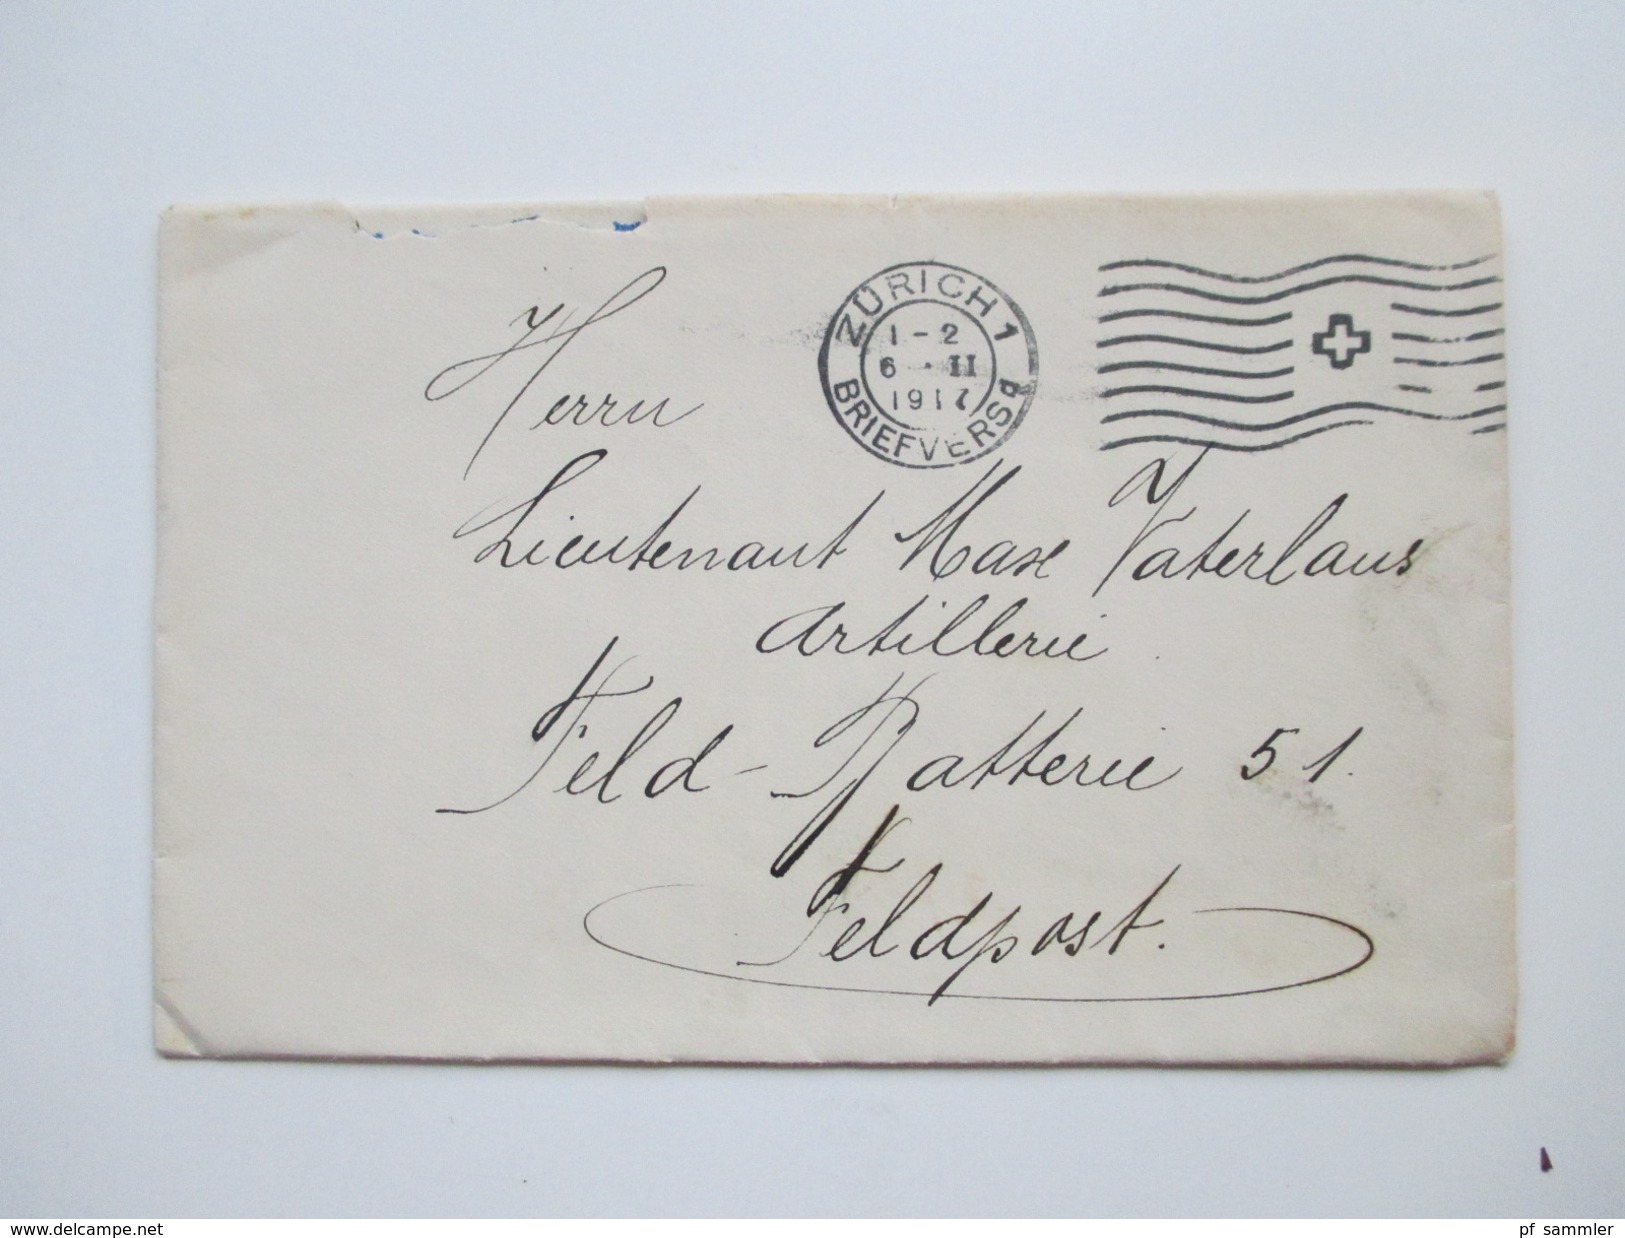 ZÜRICH 1
1-2
6 · II
1917
BRIEFVERSD
Herrn
Lieutenant Max Vaterlaus
Artillerie
Feld-Batterie 51.
Feldpost.
www.delcampe.net
pf_sammler